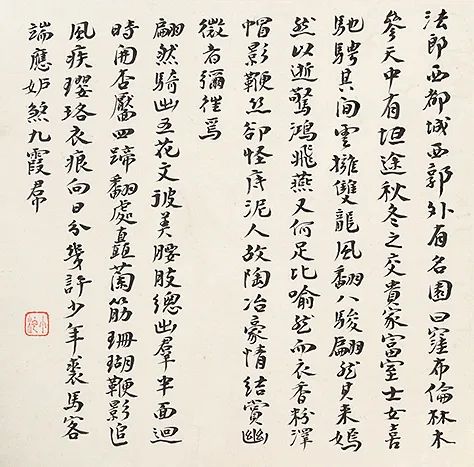 法郎西都城西郭外有名園曰窪布倫林木
參天中有坦途秋冬之交貴家富室士女喜
馳騁其间雲擁雙龍風翻八駿翩然其来嫣
然以逝驚鴻飛燕又何足比喻然而衣香粉澤
帽影鞭絲卻怪底泥人故陶冶豪情結賞幽
微者彌徃焉
翩然騎出五花文彼美腰肢總出羣半面迴
時開杏靨四蹄翻處矗蘭筋珊瑚鞭影追
風疾瓔珞衣痕向日分幾許少年裘馬客
端應妒煞九霞帬